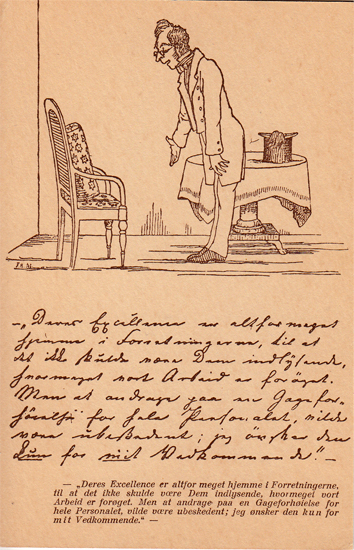 Fr. St.
— „Deres Excellence er altfor meget
hjemme i Forretningerne, til at
det ikke skulde være Dem indlysende,
hvormeget vort Arbeid er forøget.
Men at andrage paa en Gagefor-
høielse for hele Personalet, vilde
være ubeskedent; jeg ønsker den
kun for mit Vedkommende.“ —
— „Deres Excellence er altfor meget hjemme i Forretningerne,
til at det ikke skulde være Dem indlysende, hvormeget vort
Arbeid er forøget. Men at andrage paa en Gageforhøielse for
hele Personalet, vilde være ubeskedent; jeg ønsker den kun for
mit Vedkommende.“ —